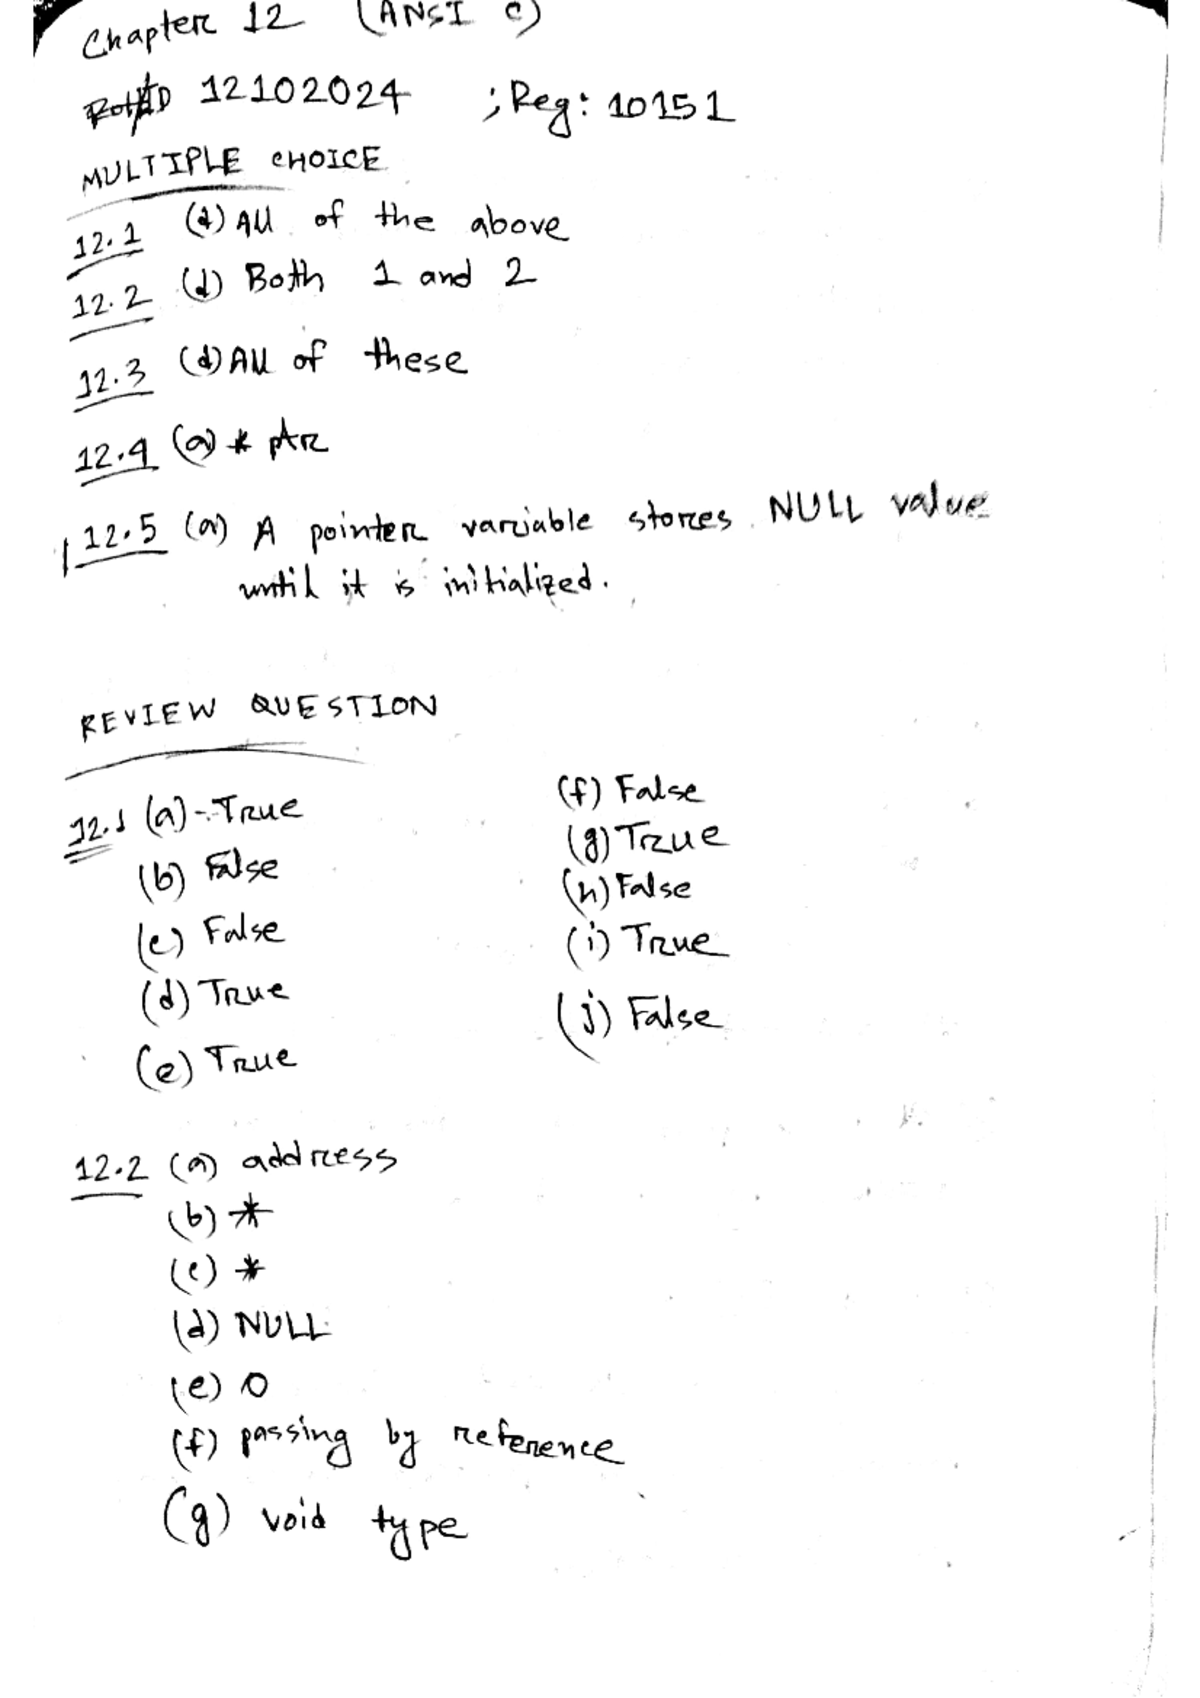 Chapter 12 (ANSI C)
12102024 ; Reg: 10151
MULTIPLE CHOICE
12.1 (d) All of the above
12.2 (d) Both 1 and 2
12.3 (d) All of these
12.4 (a) * ptr
12.5 (a) A pointer variable stores NULL value
until it is initialized.
REVIEW QUESTION
12.1 (a) - True
(b) False
(c) False
(d) True
(e) True
(f) False
(g) True
(h) False
(i) True
(j) False
12.2 (a) address
(b) *
(c) *
(d) NULL
(e) 0
(f) passing by reference
(g) void type